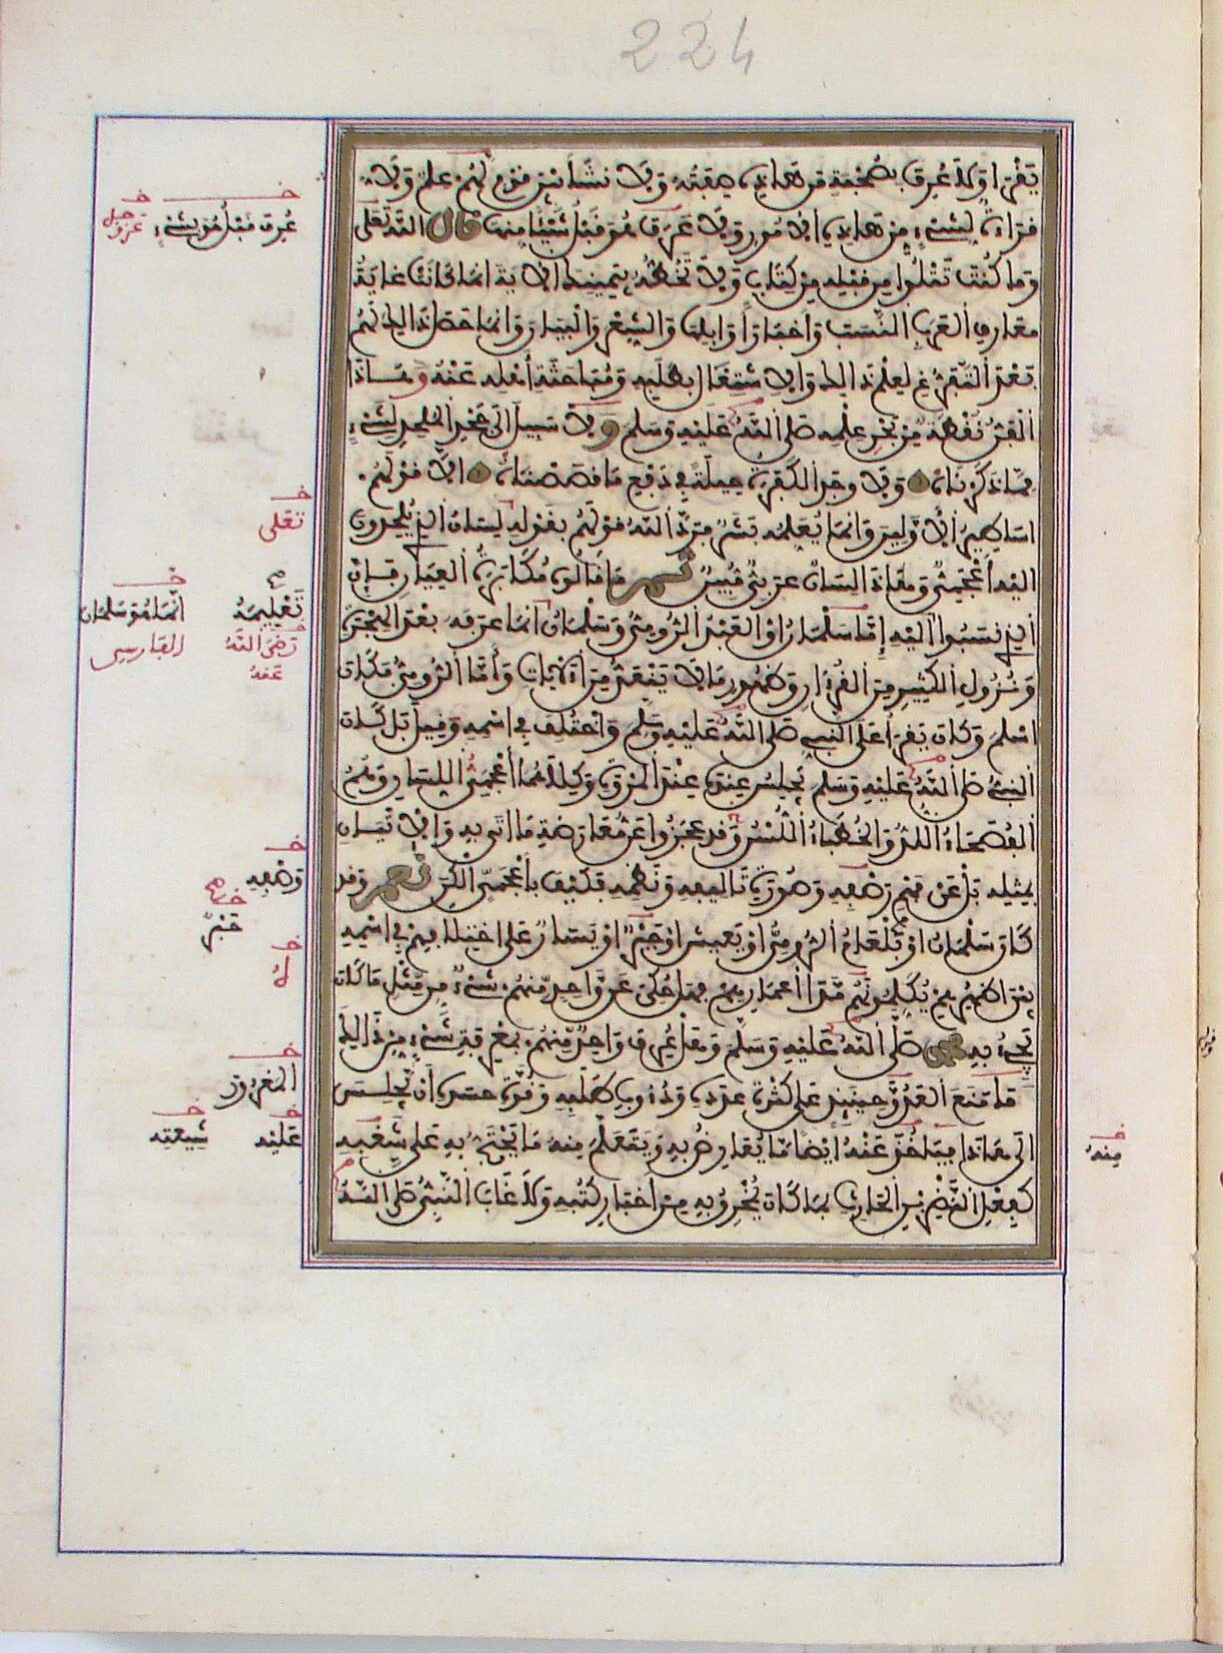 224
يقرا وكذا عرف بصحبة من هذه صفته ولا نشأ بين قوم لهم علم ولا
قراءة لشيء من هذه الامور ولا عرف هو قبل شيئا منها قال الله تعلى
وما كنت تتلوا من قبله من كتاب ولا تخطه بيمينك الاية انما كانت غاية
معارف العرب النسب واخبار اوايلها والشعر والبيان وانما حصل ذالك لهم
بعد التفرغ لعلم ذالك والاشتغال بطلبه ومباحثة أهله عنه وهاذا
الفن نقطة من بحر علمه صلى الله عليه وسلم ولا سبيل الى جحد الملحد لشيء
مما ذكرناه ولا وجد الكفرة حيلة في دفع ما قصصناه الا قولهم
اساطير الاولين وانما يعلمه بشر فرد الله قولهم بقوله لسان الذي يلحدون
اليه أعجمي وهاذا لسان عربي مبين ثم ما قالوه مكابرة العيان فإن
الذي نسبوا اليه إما سلمان او العبد الرومي وسلمان انما عرفه بعد الهجرة
ونزول الكثير من القرءان وظهور ما لا ينعد من الايات وأما الرومي فكان
اسلم وكان يقرأ على النبي صلى الله عليه وسلم واختلف في اسمه وقيل بل كان
النبي صلى الله عليه وسلم يجلس عنده عند المروة وكلاهما أعجمي اللسان وهم
الفصحاء اللد والخطباء اللسن وقد عجزوا عن معارضة ما اتى به والاتيان
بمثله بل عن فهم رصفه وصورة تاليفه ونظمه فكيف بأعجمي الكن نعم وقد
كان سلمان او بلعام الرومي او يعيش او جبر او يسار على اختلافهم في اسمه
بين اظهرهم يكلمونهم مدا أعمارهم فهل حكى عن واحد منهم شيء من مثل ما كان
يجيء به محمد صلى الله عليه وسلم وهل عرف واحد منهم بمعرفة شيء من ذالك
فما منع العدو حينئذ على كثرة عدده ودءوب طلبه وقوة حسده أن يجلس
الى هاذا فياخذ عنه ايضا ما يعارض به ويتعلم منه ما يحتج به على شغبه
كفعل النضر بن الحارث بما كان يمخرق به من أخبار كتبه وكلا غاب النبي صلى الله
عرف قبل هو بشيء
عز وجل
تعلى
تعليمه
رضي الله عنه
انما هو سلمان
الفارسي
وصفه
خبر
له
المغرور
عليه
شيعته
منه